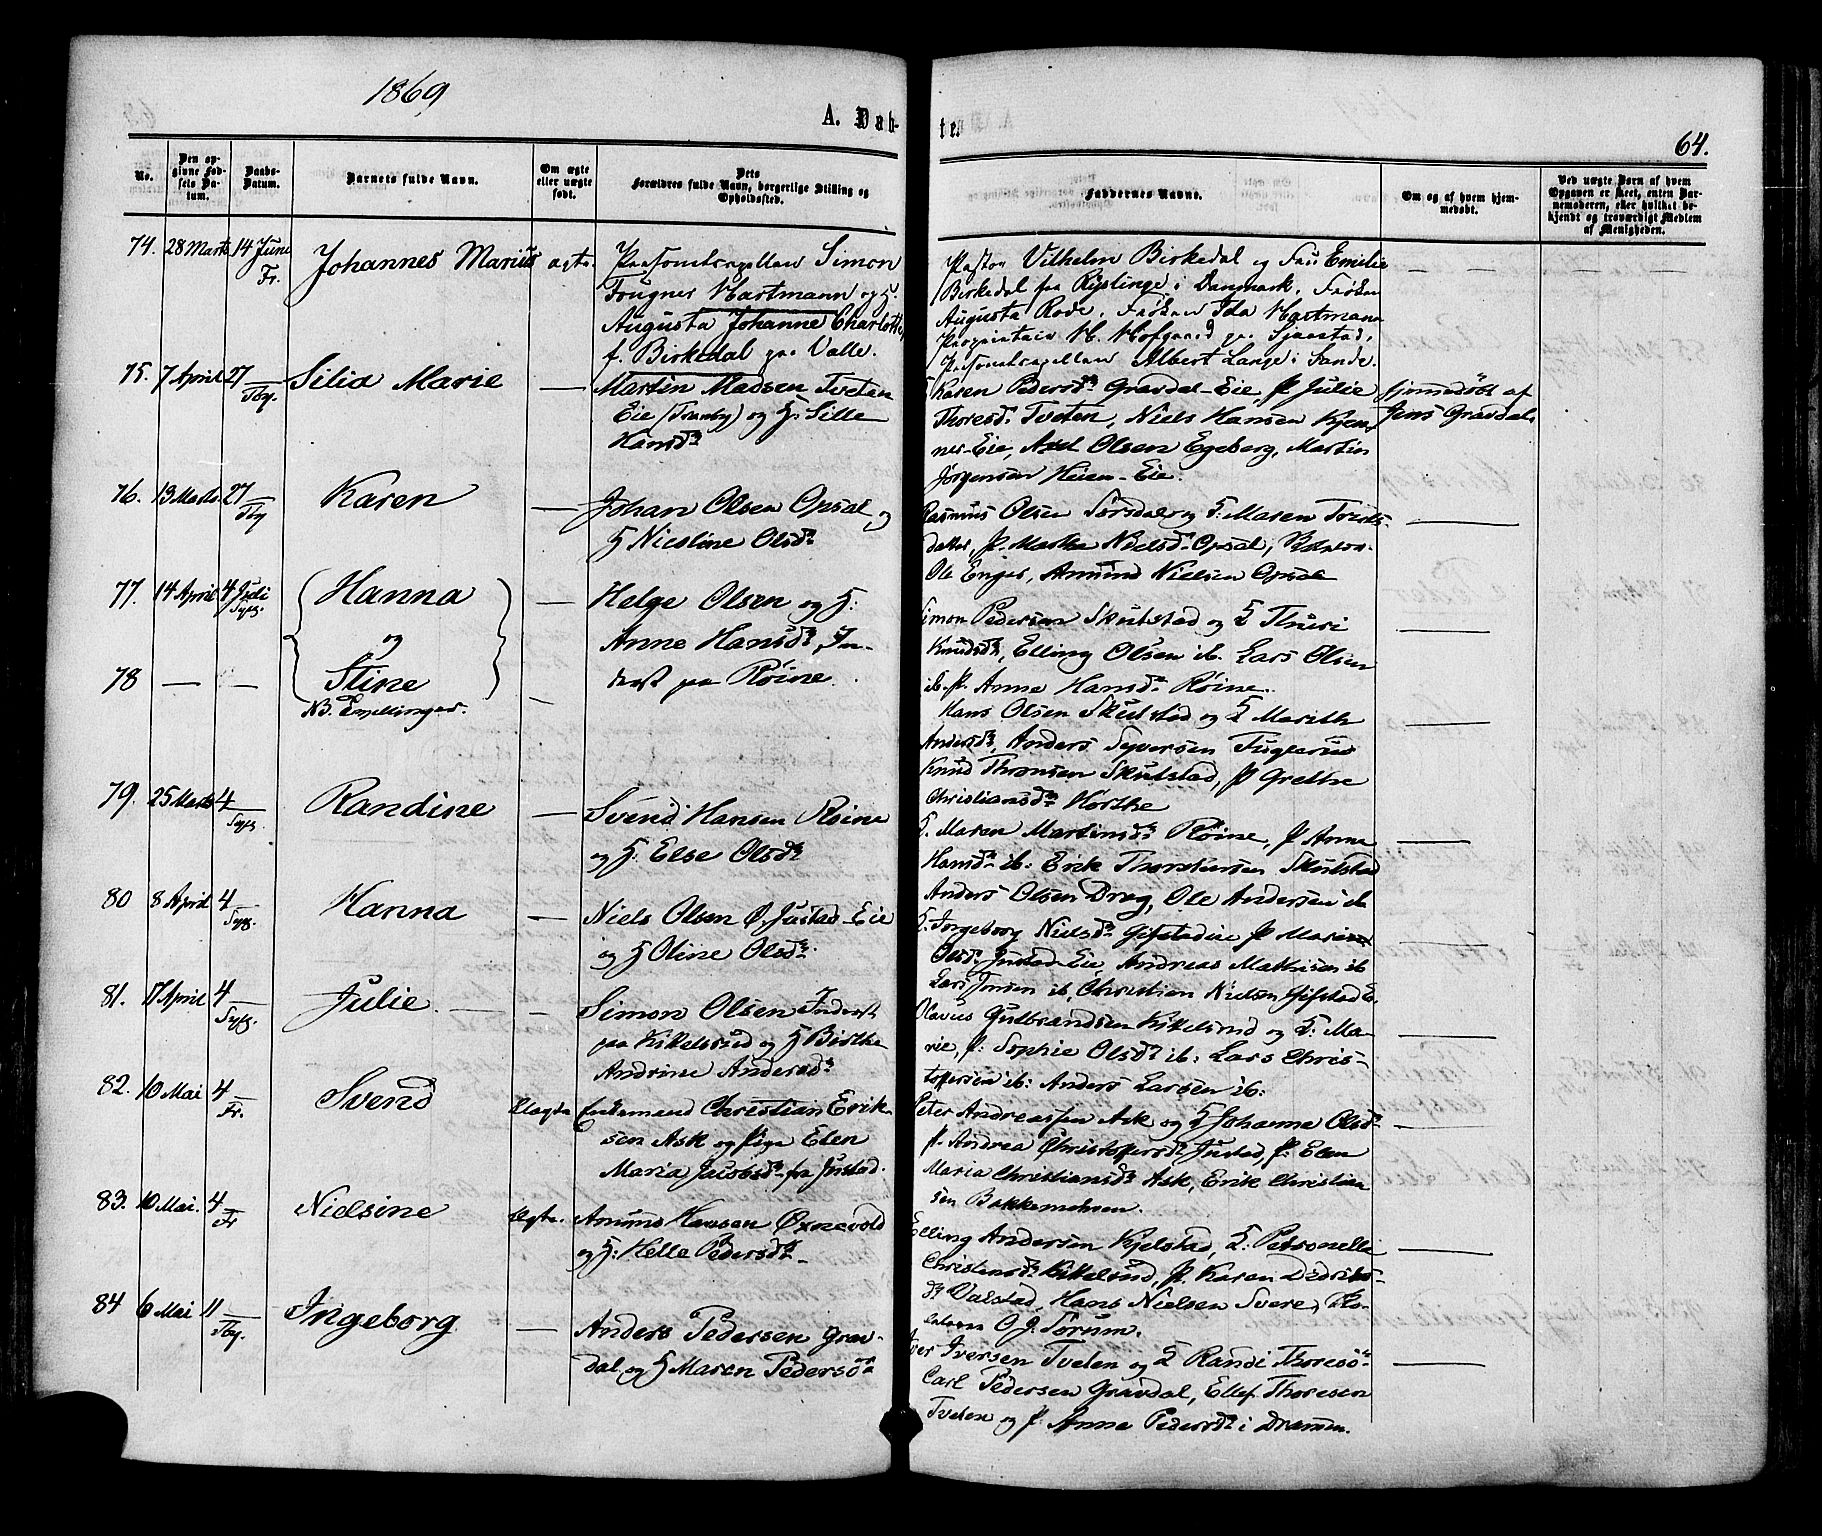 1869
A. Døb-
te.
64.
No.
Den opgivne Fødsels Datum.
Daabs-Datum.
Barnets fulde Navn.
Om ægte eller uægte født.
Dets Forældres fulde Navn, borgerlige Stilling og Opholdssted.
Faddernes Navne.
Om og af hvem hjemmedøbt.
Ved uægte Børn af hvem Opgaven er skeet, enten Barnemoderen, eller hvilket bekjendt og troværdigt Medlem af Menigheden.
74. 28 Marts 14 June Fr. Johannes Marius ægte. Personelcapellan Simon
Fougner Hartmann og H.
Augusta Johanne Charlotte
f. Birkedal paa Valle.
Pastor Vilhelm Birkedal og Fru Emilie
Birkedal fra Ryslinge i Danmark. Frøken
Augusta Rode. Frøken Ida Hartmann
Proprietair H. Hofgaard paa Sjaastad.
P.sonelcapellan Albert Lange i Sande.
75. 7 April 27 Tby. Silia Marie — Martin Madsen Tveten
Eie (Tranby) og H. Sille
Hansdr
Karen Pedersdr Gravdal-Eie, P Julie
Thoresdr Tveten, Niels Hansen Kjen-
ner-Eie, Axel Olsen Egeberg, Martin
Jørgensen Heien-Eie.
hjemmedøbt af
Jens Gravdal.
76. 13 Marts 27 Tby Karen — Johan Olsen Opsal og
H Nicoline Olsdr
Rasmus Olsen Sørsdal og H. Maren
datter, P. Marthe Nielsdr Opsal,
Ole Enger, Amund Nielsen Opsal
77. 14 April 4 Juli Syll. Hanna — Helge Olsen og H:
og Anne Hansdr In-
78 — — Stine — derst paa Røine.
NB. Tvillinger.
Simon Pedersen Skulstad og H Thuri
Knudsdr, Elling Olsen ib. Lars Olsen
ib. P. Anne Hansdr Røine.
Hans Olsen Skulstad og H Marithe
Andersdr, Anders Syversen Fuglerud
Knud Thronsen Skulstad, P Grethe
Christiansdr Hørthe
79. 25 Marts 4 Syll. Randine — Svend Hansen Røine
og H: Else Olsdr
H. Maren Martinsdr Røine, P Anne
Hansdr ib: Erik Thorstensen Skulstad
Anders Olsen Drog, Ole Andersen ib
80 8 April 4 Syll. Hanna — Niels Olsen Ø. Justad-Eie
og H Oline Olsdr.
H. Ingeborg Nielsdr Gifstadeie P Maren
Olsdr Justad-Eie, Andreas Mathisen ib
Lars Jonsen ib, Christian Nielsen Gifstad E.
81. 17 April 4 Syll. Julie. — Simon Olsen Inderst
paa Kikelsrud og H Birthe
Andrine Andersdr
Olavus Gulbrandsen Kikelsrud og H. Ma-
rie, P. Sophie Olsdr ib: Lars Chris-
tophersen ib: Anders Larsen ib:
82. 10 Mai 4 Fr. Svend Uægte Enkemand Christian Erik-
sen Ask og Pige Elen
Maria Jacobsdr fra Justad.
Peter Andreassen Ask og H Johanne Olsdr
P. Andrea Christophersdr Justad, P. Elen
Maria Christiansdr Ask, Erik Christian
sen Bakkemohaven.
83. 10 Mai. 4 Fr Nielsine Ægte. Amund Hansen Øxnevold
og H: Helle Pedersdr
Elling Andersen Kjelstad, H. Petronelle
Christensdr Kikelsrud, P. Karen Didriks-
dr Valstad, Hans Nielsen Svere,
O. J. Sørum.
84 6 Mai 11 Tby. Ingeborg — Anders Pedersen Grav-
dal og H Maren Pedersdr
Iver Iversen Tveten og H Randi Thoresdr
Carl Pedersen Gravdal, Ellef Thoresen
Tveten og P. Anne Pedersdr i Drammen.